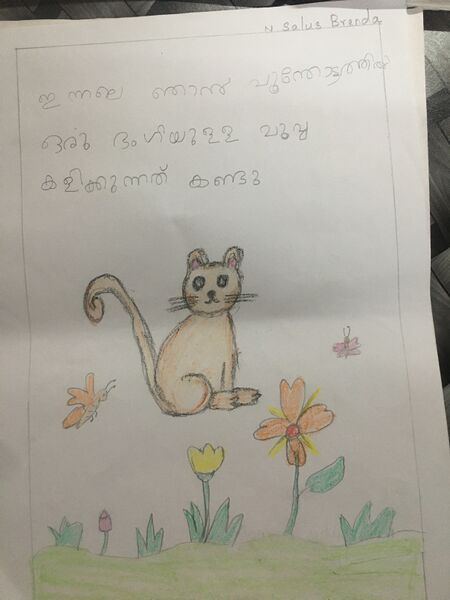 N Salus Brenda
ഇന്നലെ ഞാൻ പൂന്തോട്ടത്തിൽ
ഒരു ഭംഗിയുള്ള പൂച്ച
കളിക്കുന്നത് കണ്ടു